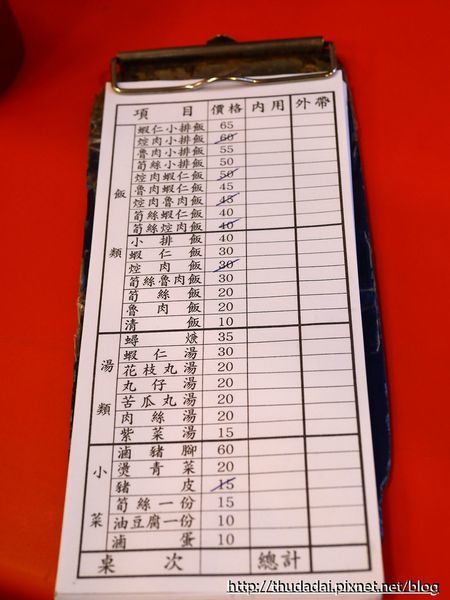 項目 價格 內用 外帶
飯類
蝦仁小排飯 65
焢肉小排飯 60
魯肉小排飯 55
筍絲小排飯 50
焢肉蝦仁飯 50
魯肉蝦仁飯 45
焢肉魯肉飯 45
筍絲蝦仁飯 40
筍絲焢肉飯 40
小排飯 40
蝦仁飯 30
焢肉飯 30
筍絲魯肉飯 30
筍絲飯 20
魯肉飯 20
清飯 10
湯類
蟳燉 35
蝦仁湯 30
花枝丸湯 20
丸仔湯 20
苦瓜丸湯 20
肉絲湯 20
紫菜湯 15
小菜
滷豬腳 60
燙青菜 20
豬皮 15
筍絲一份 15
油豆腐一份 10
滷蛋 10
桌次 總計
http://thudadai.pixnet.net/blog